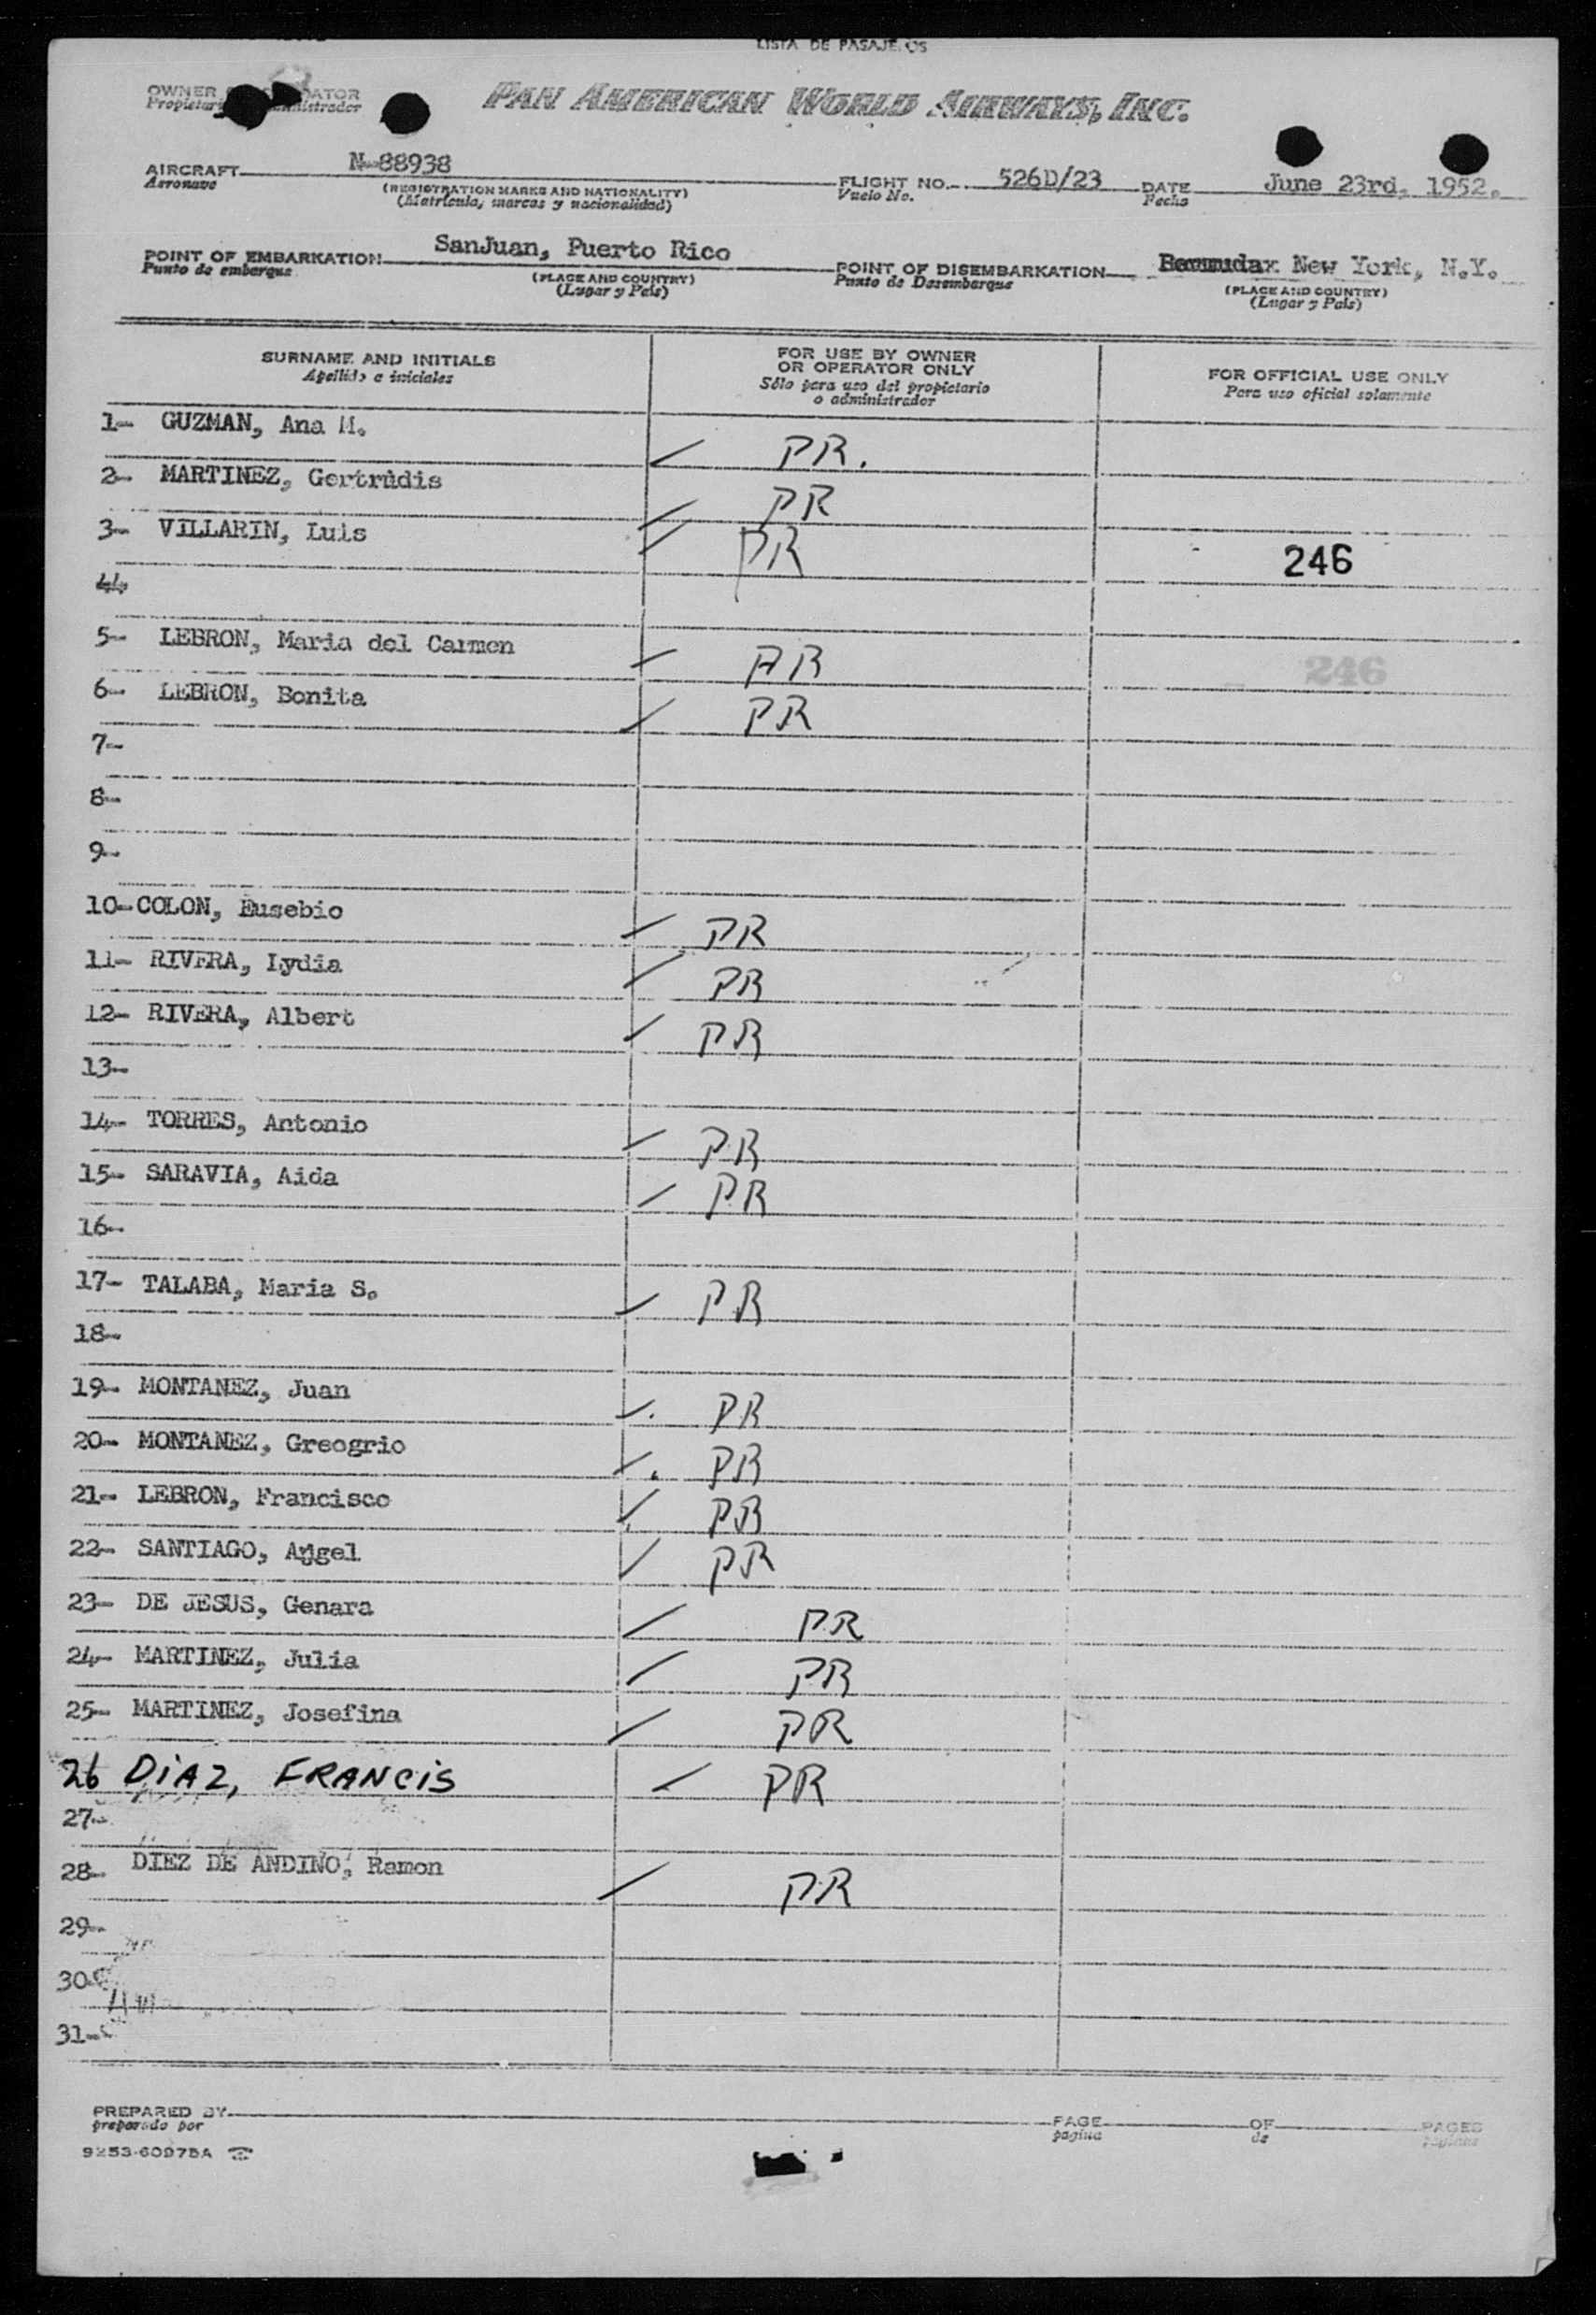 LISTA DE PASAJEROS
OWNER OPERATOR
Propietario administrador
PAN AMERICAN WORLD AIRWAYS, INC.
AIRCRAFT N-88938 FLIGHT NO. 526D/23 DATE June 23rd, 1952.
Aeronave (REGISTRATION MARKS AND NATIONALITY) Vuelo No. Fecha
(Matrícula, marcas y nacionalidad)
POINT OF EMBARKATION SanJuan, Puerto Rico POINT OF DISEMBARKATION Bermudax New York, N.Y.
Punto de embarque (PLACE AND COUNTRY) Punto de Desembarque (PLACE AND COUNTRY)
(Lugar y País) (Lugar y País)
SURNAME AND INITIALS FOR USE BY OWNER OR OPERATOR ONLY FOR OFFICIAL USE ONLY
Apellido e iniciales Sólo para uso del propietario o administrador Para uso oficial solamente
1- GUZMAN, Ana M. ✓ PR.
2- MARTINEZ, Gertrudis ✓ PR
3- VILLARIN, Luis ✓ PR 246
4-
5- LEBRON, Maria del Carmen ✓ PR 246
6- LEBRON, Bonita ✓ PR
7-
8-
9-
10- COLON, Eusebio ✓ PR
11- RIVERA, Lydia ✓ PR
12- RIVERA, Albert ✓ PR
13-
14- TORRES, Antonio ✓ PR
15- SARAVIA, Aida ✓ PR
16-
17- TALABA, Maria S. ✓ PR
18-
19- MONTANEZ, Juan ✓ PR
20- MONTANEZ, Greogrio ✓ PR
21- LEBRON, Francisco ✓ PR
22- SANTIAGO, Angel ✓ PR
23- DE JESUS, Genara ✓ PR
24- MARTINEZ, Julia ✓ PR
25- MARTINEZ, Josefina ✓ PR
26 DIAZ, FRANCIS ✓ PR
27-
28- DIEZ DE ANDINO, Ramon ✓ PR
29-
30-
31-
PREPARED BY PAGE OF PAGES
preparado por página de páginas
9253-60975A